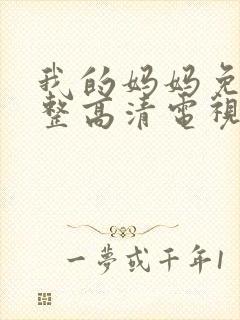 我的妈妈免
整高清電視
一夢或千年1